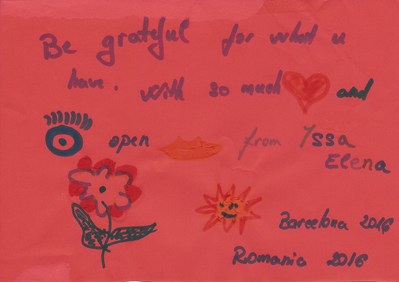 Be grateful for what u
have. With so much and
open from Issa
Elena
Barcelona 2016
Romania 2016